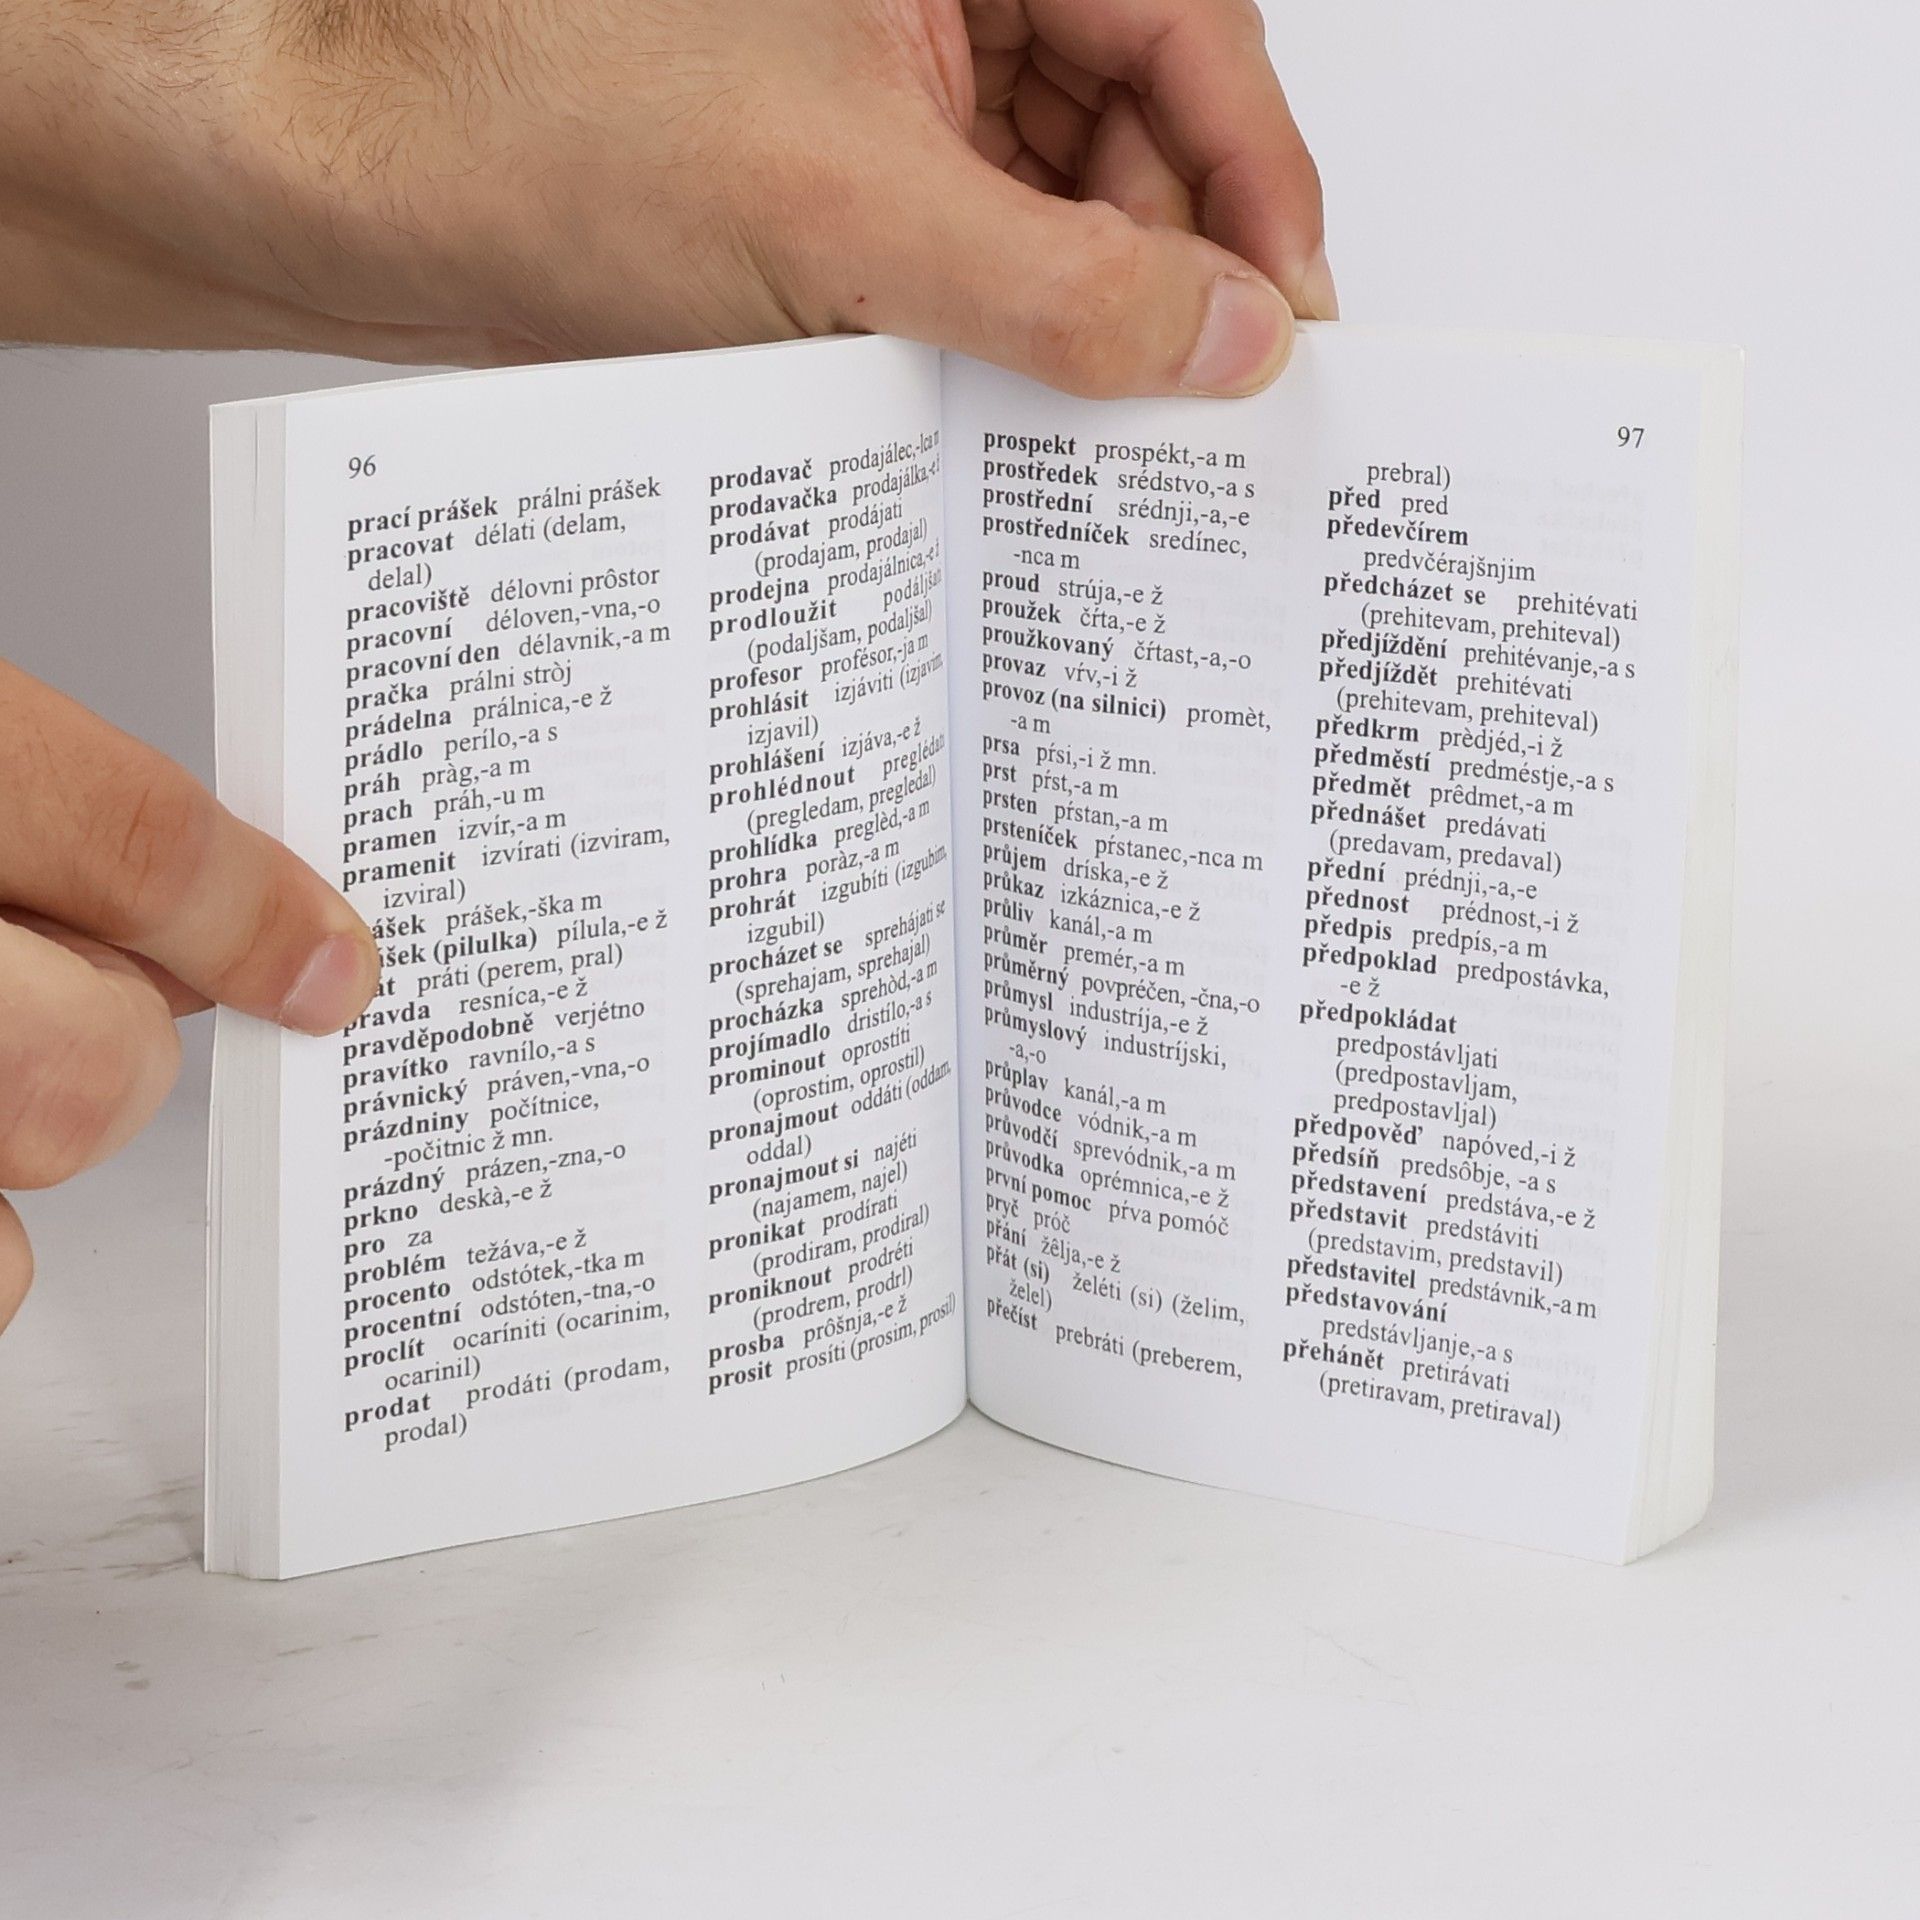 96
prací prášek prálni prášek
pracovat délati (delam,
delal)
pracoviště délovni prôstor
pracovní déloven,-vna,-o
pracovní den délavnik,-a m
pračka prálni stròj
prádelna prálnica,-e ž
prádlo perílo,-a s
práh pràg,-a m
prach práh,-u m
pramen izvír,-a m
pramenit izvírati (izviram,
izviral)
ášek prášek,-ška m
ášek (pilulka) pílula,-e ž
át práti (perem, pral)
pravda resníca,-e ž
pravděpodobně verjétno
pravítko ravnílo,-a s
právnický práven,-vna,-o
prázdniny počítnice,
-počitnic ž mn.
prázdný prázen,-zna,-o
prkno deskà,-e ž
pro za
problém težáva,-e ž
procento odstótek,-tka m
procentní odstóten,-tna,-o
proclít ocaríniti (ocarinim,
ocarinil)
prodat prodáti (prodam,
prodal)
prodavač prodajálec,-lca m
prodavačka prodajálka,-e ž
prodávat prodájati
(prodajam, prodajal)
prodejna prodajálnica,-e ž
prodloužit podáljšati
(podaljšam, podaljšal)
profesor profésor,-ja m
prohlásit izjáviti (izjavim,
izjavil)
prohlášení izjáva,-e ž
prohlédnout preglédati
(pregledam, pregledal)
prohlídka preglèd,-a m
prohra poràz,-a m
prohrát izgubíti (izgubim,
izgubil)
procházet se sprehájati se
(sprehajam, sprehajal)
procházka sprehòd,-a m
projímadlo dristílo,-a s
prominout oprostíti
(oprostim, oprostil)
pronajmout oddáti (oddam,
oddal)
pronajmout si najéti
(najamem, najel)
pronikat prodírati
(prodiram, prodiral)
proniknout prodréti
(prodrem, prodrl)
prosba prôšnja,-e ž
prosit prosíti (prosim, prosil)
97
prospekt prospékt,-a m
prostředek srédstvo,-a s
prostřední srédnji,-a,-e
prostředníček sredínec,
-nca m
proud strúja,-e ž
proužek čŕta,-e ž
proužkovaný čŕtast,-a,-o
provaz vŕv,-i ž
provoz (na silnici) promèt,
-a m
prsa pŕsi,-i ž mn.
prst pŕst,-a m
prsten pŕstan,-a m
prsteníček pŕstanec,-nca m
průjem dríska,-e ž
průkaz izkáznica,-e ž
průliv kanál,-a m
průměr premér,-a m
průměrný povpréčen, -čna,-o
průmysl industríja,-e ž
průmyslový industríjski,
-a,-o
průplav kanál,-a m
průvodce vódnik,-a m
průvodčí sprevódnik,-a m
průvodka oprémnica,-e ž
první pomoc pŕva pomóč
pryč próč
přání žêlja,-e ž
přát (si) želéti (si) (želim,
želel)
přečíst prebráti (preberem,
prebral)
před pred
předevčírem
predvčérajšnjim
předcházet se prehitévati
(prehitevam, prehiteval)
předjíždění prehitévanje,-a s
předjíždět prehitévati
(prehitevam, prehiteval)
předkrm prèdjéd,-i ž
předměstí predméstje,-a s
předmět prêdmet,-a m
přednášet predávati
(predavam, predaval)
přední prédnji,-a,-e
přednost prédnost,-i ž
předpis predpís,-a m
předpoklad predpostávka,
-e ž
předpokládat
predpostávljati
(predpostavljam,
predpostavljal)
předpověď napóved,-i ž
předsíň predsôbje, -a s
představení predstáva,-e ž
představit predstáviti
(predstavim, predstavil)
představitel predstávnik,-a m
představování
predstávljanje,-a s
přehánět pretirávati
(pretiravam, pretiraval)